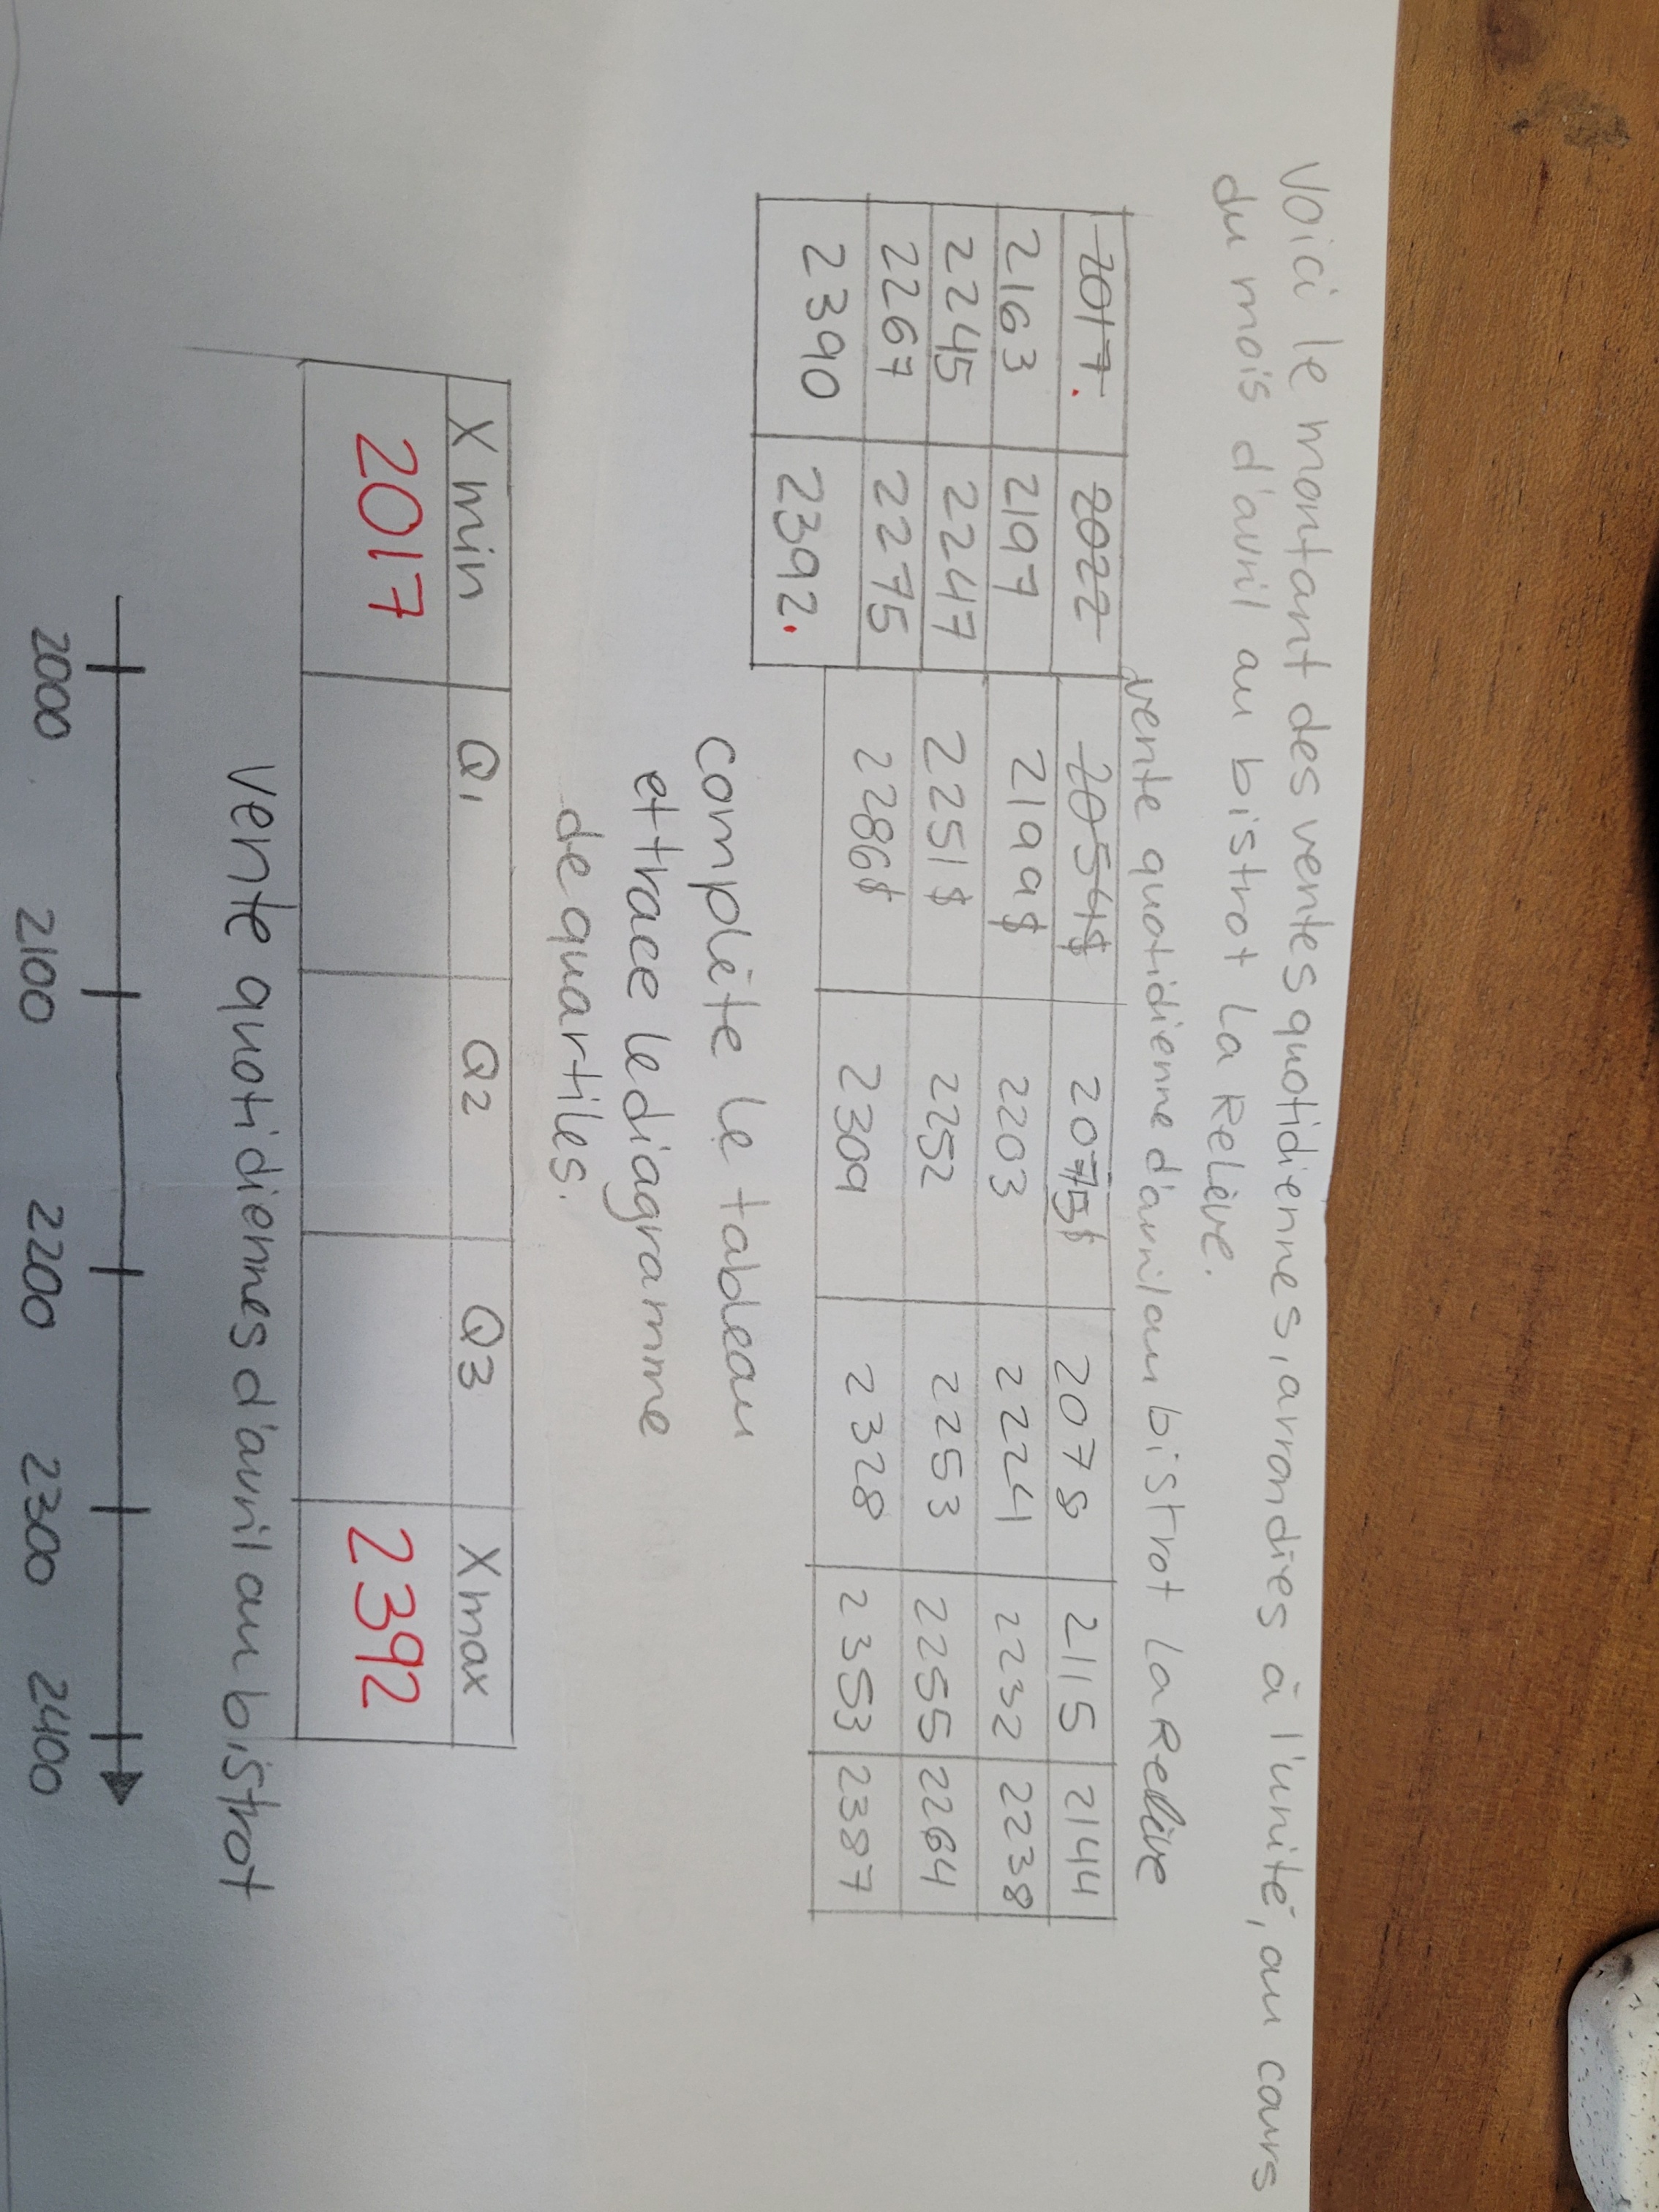 Voici le montant des ventes quotidiennes, arrondies à l'unité, au cours
du mois d'avril au bistrot La Relève.
vente quotidienne d'avril au bistrot La Relève
2017. 2022 2054$ 2075$ 2078 2115 2144
2163 2197 2199$ 2203 2224 2232 2238
2245 2247 2251$ 2252 2253 2255 2264
2267 2275 2286$ 2309 2328 2353 2387
2390 2392.
complète le tableau
et trace le diagramme
de quartiles.
X min Q1 Q2 Q3 Xmax
2017 2392
vente quotidiennes d'avril au bistrot
2000 2100 2200 2300 2400